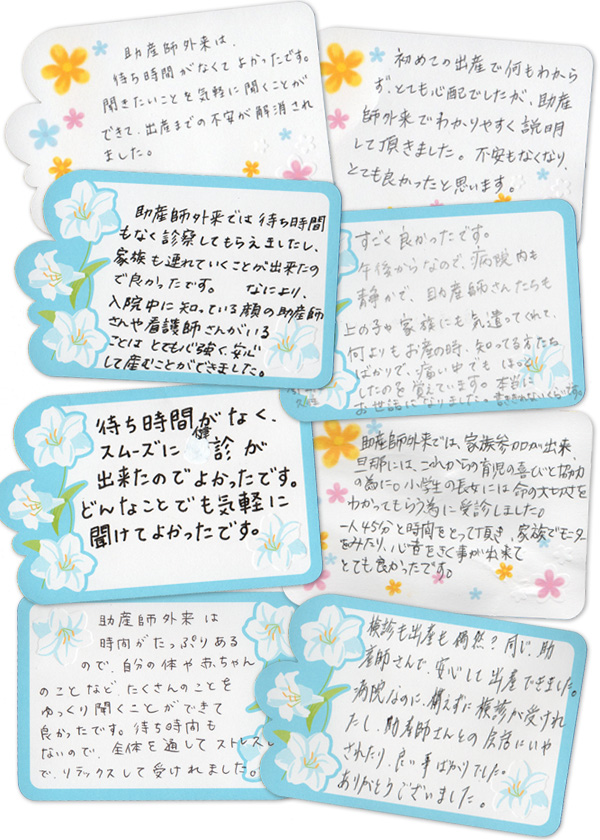 助産師外来は、
待ち時間がなくてよかったです。
聞きたいことを気軽に聞くことが
できて、出産までの不安が解消され
ました。
初めての出産で何もわから
ず、とても心配でしたが、助産
師外来でわかりやすく説明
して頂きました。不安もなくなり、
とても良かったと思います。
助産師外来では待ち時間
もなく診察してもらえましたし、
家族も連れていくことが出来たの
で良かったです。 なにより、
入院中に知っている顔の助産師
さんや看護師さんがいる
ことはとても心強く、安心
して産むことができました。
すごく良かったです。
午後からなので、病院内も
静かで、助産師さんたちも
上の子や家族にも気遣ってくれて、
何よりもお産の時、知ってる方たち
ばかりで、痛い中でもほっと
したのを覚えています。本当に
お世話になりました。書ききれないくらいです。
待ち時間がなく、
スムーズに健診が
出来たのでよかったです。
どんなことでも気軽に
聞けてよかったです。
助産師外来では、家族参加が出来、
旦那には、これからの育児の喜びと協力
の為に。小学生の長女には命の大切さを
わかってもらう為に受診しました。
一人45分と時間をとって頂き、家族でモニター
をみたり、心音をきく事が出来て
とても良かったです。
助産師外来は
時間がたっぷりある
ので、自分の体や赤ちゃん
のことなど、たくさんのことを
ゆっくり聞くことができて
良かったです。待ち時間も
ないので、全体を通してストレスなし
で、リラックスして受けれました。
検診も出産も偶然?同じ助
産師さんで、安心して出産できました。
病院なのに、構えずに検診が受けれ
たし、助産師さんとの会話にいや
されたり、良い事ばかりでした。
ありがとうございました。